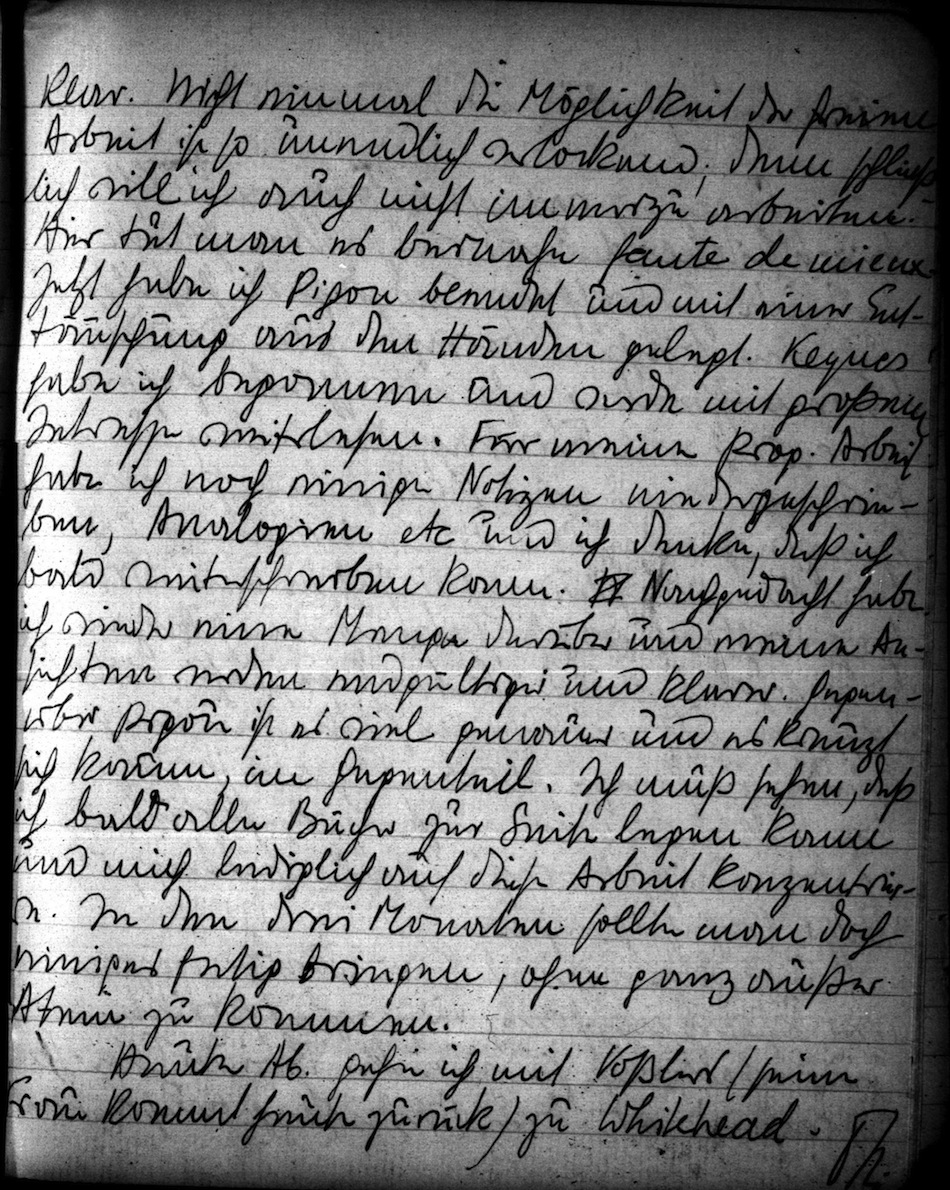 klar. Nicht einmal die Möglichkeit der freien
Arbeit ist so unendlich verlockend; denn schließ
lich will ich auch nicht immerzu arbeiten.
Hier tut man es beinahe faute de mieux.
Jetzt habe ich Pigou beendet und mit einer Ent-
täuschung aus den Händen gelegt. Keynes
habe ich begonnen und werde mit großem
Interesse weiterlesen. Für meine Prop. Arbeit
habe ich noch einige Notizen niedergeschrie-
ben, Analogien etc und ich denke, daß ich
bald weiterschreiben kann. Nachgedacht habe
ich wieder eine Menge darüber und meine An-
sichten werden endgültiger und klarer. Gegen-
über Pigou ist es viel genauer und es kreuzt
sich kaum, im Gegenteil. Ich muß sehen, daß
ich bald alle Bücher zur Seite legen kann
und mich lediglich auf diese Arbeit konzentrie-
re. In den drei Monaten sollte man doch
einiges fertig bringen, ohne ganz außer
Atem zu kommen.
Heute Ab. gehe ich mit Voßlers (seine
Frau kommt heute zurück) zu Whitehead.